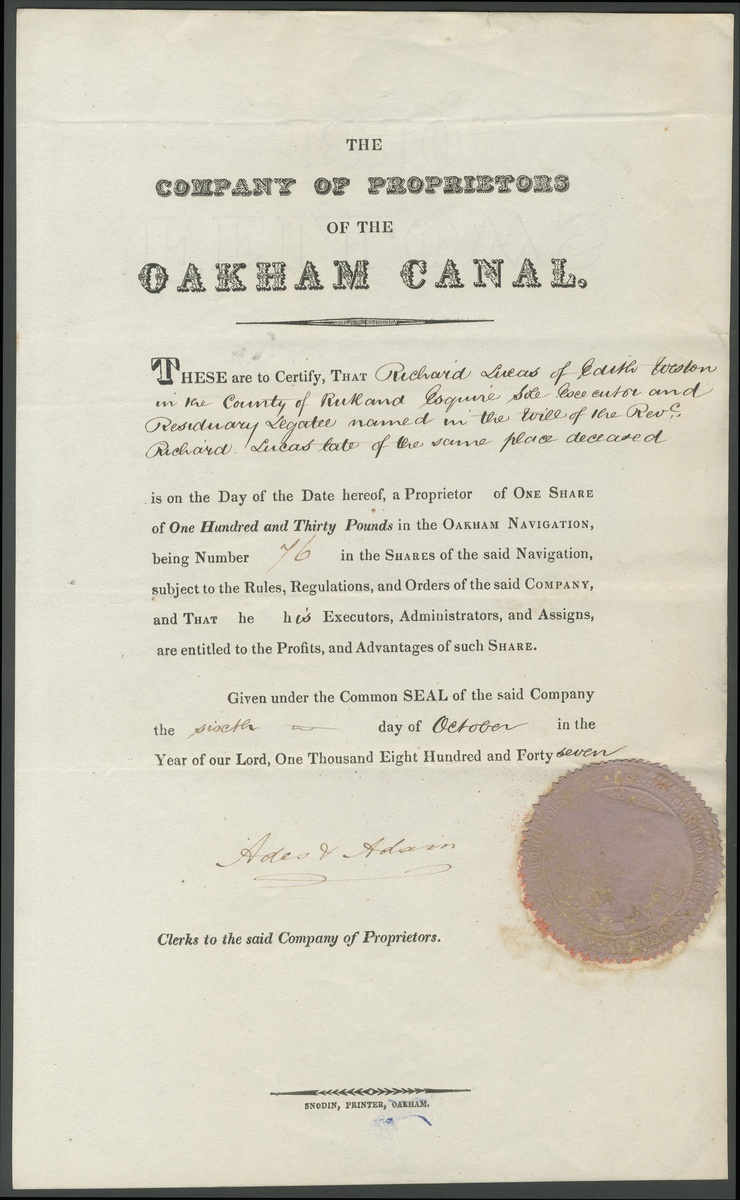 THE
COMPANY OF PROPRIETORS
OF THE
OAKHAM CANAL.
THESE are to Certify, THAT Richard Lucas of Edith Weston
in the County of Rutland Esquire Sole Executor and
Residuary Legatee named in the Will of the Revd.
Richard Lucas late of the same place deceased
is on the Day of the Date hereof, a Proprietor of ONE SHARE
of One Hundred and Thirty Pounds in the OAKHAM NAVIGATION,
being Number 76 in the SHARES of the said Navigation,
subject to the Rules, Regulations, and Orders of the said COMPANY,
and THAT he his Executors, Administrators, and Assigns,
are entitled to the Profits, and Advantages of such SHARE.
Given under the Common SEAL of the said Company
the sixth day of October in the
Year of our Lord, One Thousand Eight Hundred and Forty seven
Ades & Adam
Clerks to the said Company of Proprietors.
SNODIN, PRINTER, OAKHAM.